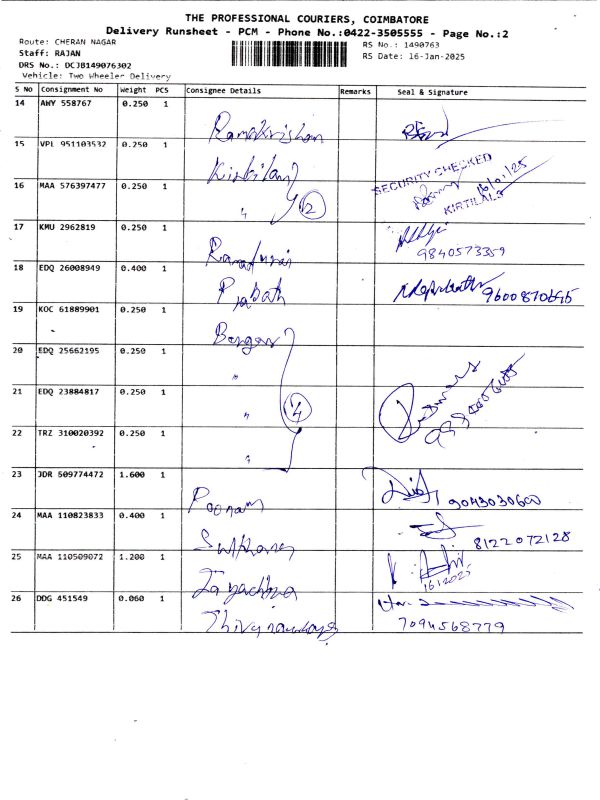 THE PROFESSIONAL COURIERS, COIMBATORE
Delivery Runsheet - PCM - Phone No.:0422-3505555 - Page No.:2
Route: CHERAN NAGAR
RS No.: 1490763
Staff: RAJAN
RS Date: 16-Jan-2025
DRS No.: DCJB149076302
Vehicle: Two Wheeler Delivery
S No Consignment No Weight PCS Consignee Details Remarks Seal & Signature
14 AWY 558767 0.250 1 Ramakrishnan
15 VPL 951103532 0.250 1 Kirtilal
SECURITY CHECKED
16/01/25
KIRTILALS
16 MAA 576397477 0.250 1 " 2
17 KMU 2962819 0.250 1 9840573359
18 EDQ 26008949 0.400 1 Prabath
19 KOC 61889901 0.250 1
20 EDQ 25662195 0.250 1 "
21 EDQ 23884817 0.250 1 " 4
22 TRZ 310020392 0.250 1 "
23 JDR 509774472 1.600 1 Poonam 9043030600
24 MAA 110823833 0.400 1 8122072128
25 MAA 110509072 1.200 1
26 DDG 451549 0.060 1 7094568779